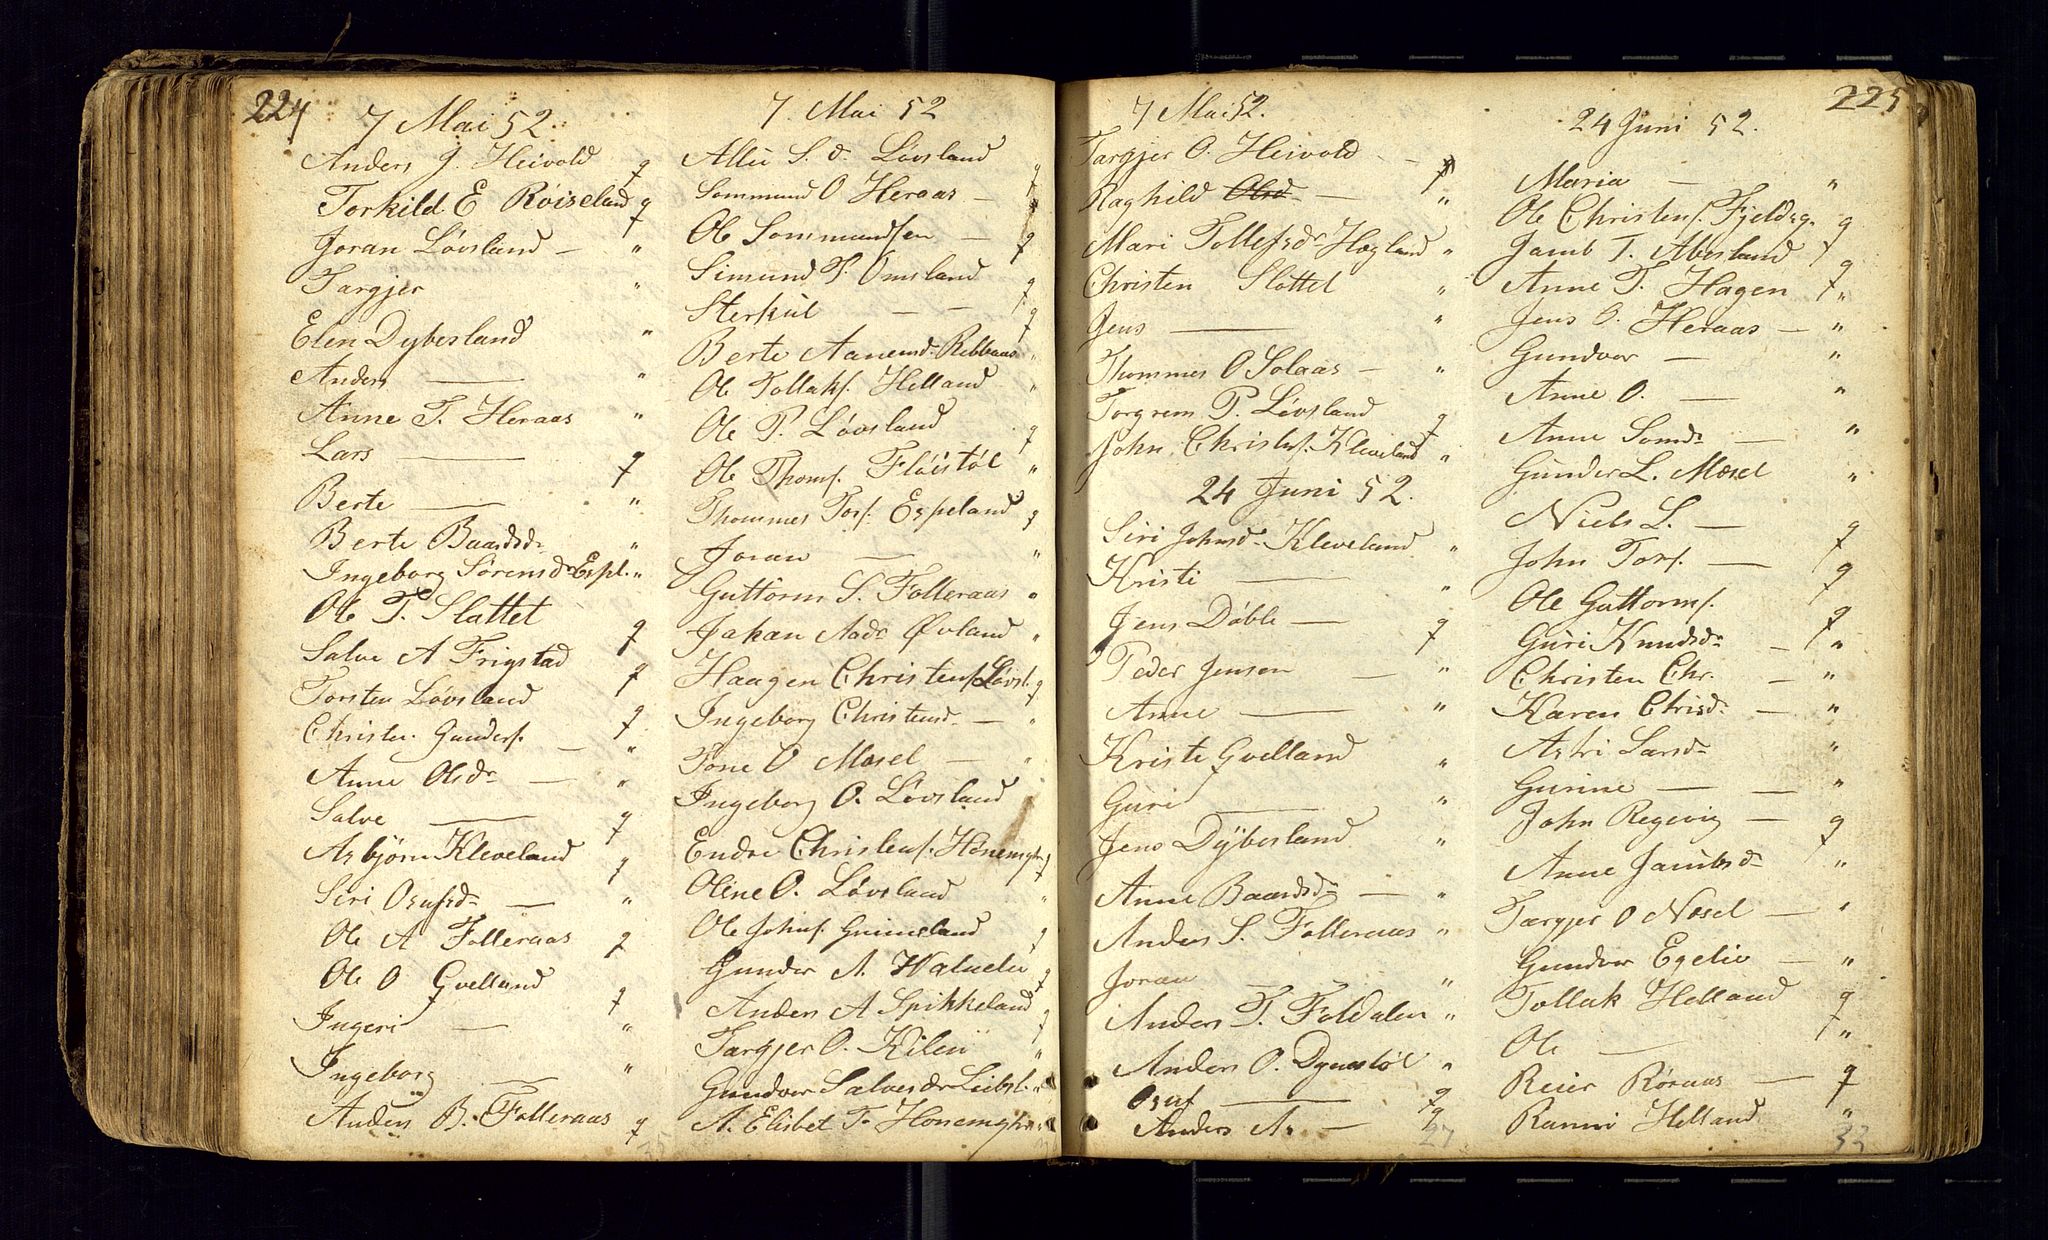 224
7 Mai 52
Anders J. Heivold q
Torkild E Røiseland q
Joran Løvsland — "
Targjer "
Elen Dybesland "
Anders — "
Anne T. Heraas "
Lars — q
Berte — "
Berte Baardsdr "
Ingeborg Sørensdr Espl. "
Ole T. Slottet q
Salve A Frigstad q
Torsten Løvsland q
Christen Gunders. — "
Anne Olsdr — "
Salve — q
Asbjørn Kleveland q
Siri Osufsdr — "
Ole A Folleraas q
Ole O Gvelland q
Ingeri — "
Ingeborg — "
Anders B. Folleraas q
35
7. Mai 52
S. d. Løvsland q
Sommund O Heraas —
Ole Sommundsen — q
Simund T. Omsland q
Sterkul — — q
Berte Aanensd. Ribbaas "
Ole Tollaks. Helland "
Ole P. Løvsland q
Ole Thoms. Fløistøl "
Thommes Tors. Espeland q
Joran — "
Guttorm S. Folleraas "
Jakan Aadr Øvland "
Haagen Christens. Løvsl. q
Ingeborg Christensd. — "
Tone O Mosel — "
Ingeborg O. Løvsland
Endre Christens. Honemyhr q
Oline O. Løvsland "
Ole Johns. Grimeland q
Gunder A. q
Anders A Spikkeland q
Targjer O. Kilen "
Gundvor Salvesdr Liebsl. "
A. Elisbet T. Honemyhr "
225
7 Mai 52.
Targjer O. Heivold — q
Raghild Olsd. — "
Mari Tollefsdr Høgland "
Christen Slottet "
Jens — "
Thommes O Solaas — "
Torgrem P. Løvsland q
John Christens. Kleveland "
24 Juni 52.
Siri Johnsdr Kleveland "
Kristi — "
Jens Døble — q
Peder Jensen — "
Anne — "
Kriste Gvelland "
Guri — "
Jens Dybesland "
Anne Baardsdr — "
Anders S. Folleraas "
Joran — "
Anders T. Foldalen "
Anders O. Dynestøl "
Osuf — q
Anders A. — q
27
24 Juni 52.
Maria — "
Ole Christens. Fjeldsg. q
Jacub T. Abesland q
Anne T. Hagen "
Jens O. Heraas — "
Gundvor — "
Anne O. — "
Anne Somdr — "
Gunder L. Mosel "
Niels L. — q
John Tors. — q
Ole Guttorms. q
Guri Knudsdr — "
Christen Chr. — "
Karen Chrisdr — "
Astri Larsdr "
Gurine — — "
John Regevig — q
Anne Jacubsdr "
Targjer O Nosel — "
Gundvor Egelie — "
Tollak Helland q
Ole — "
Reier Røraas — q
Ranni Helland "
33